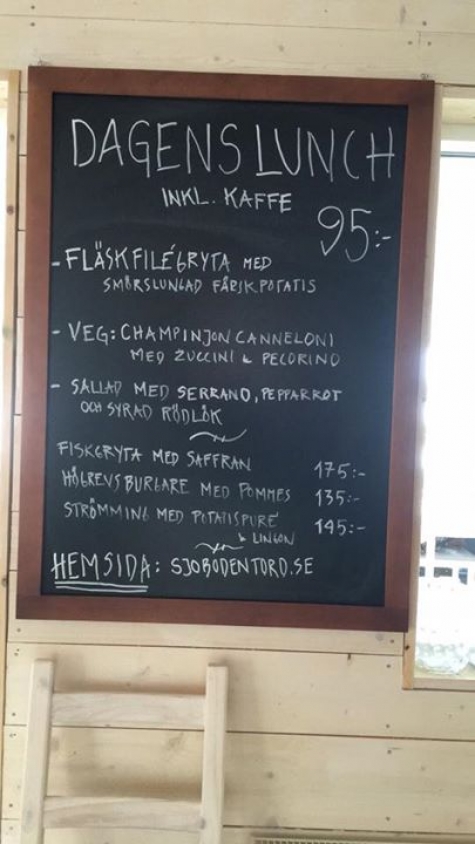 DAGENS LUNCH
INKL. KAFFE
95:-
- FLÄSKFILÉGRYTA MED
SMÖRSLUNGAD FÄRSKPOTATIS
- VEG: CHAMPINJON CANNELONI
MED ZUCCINI & PECORINO
- SALLAD MED SERRANO, PEPPARROT
OCH SYRAD RÖDLÖK
FISKGRYTA MED SAFFRAN 175:-
HÖGREVSBURGARE MED POMMES 135:-
STRÖMMING MED POTATISPURÉ 145:-
& LINGON
HEMSIDA: SJOBODENTORD.SE